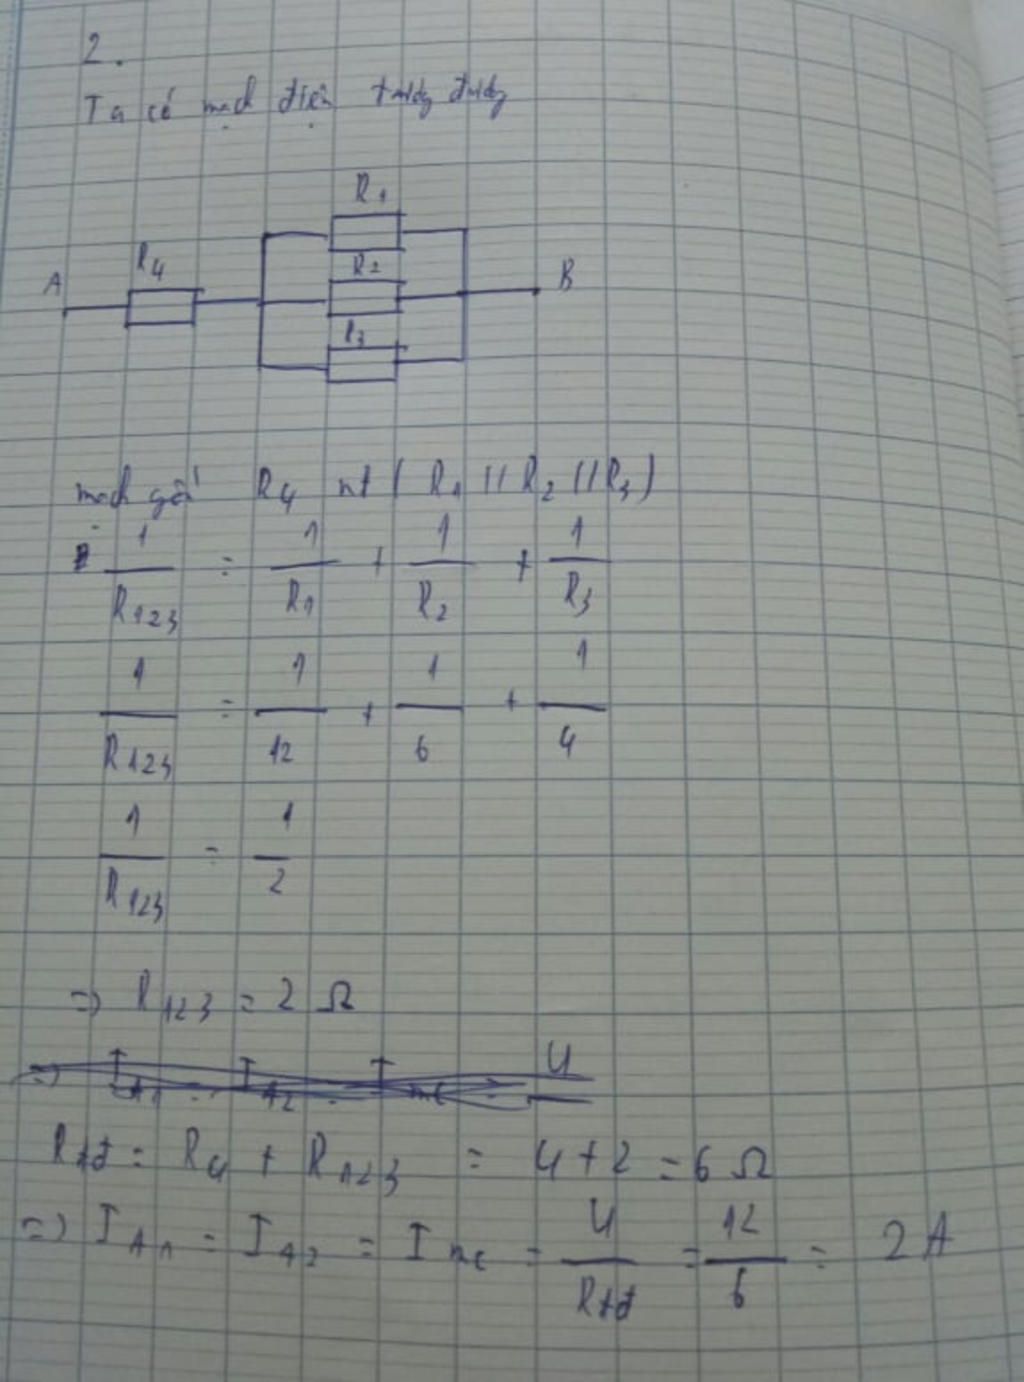 2.
Ta có mạch điện tương đương
R1
R4
A
R2
B
R3
mạch gồm R4 nt ( R1 // R2 // R3 )
1/R123 = 1/R1 + 1/R2 + 1/R3
1/R123 = 1/12 + 1/6 + 1/4
1/R123 = 1/2
=> R123 = 2 Ω
Rtđ = R4 + R123 = 4 + 2 = 6 Ω
=> IA1 = IA2 = Imc = U/Rtđ = 12/6 = 2 A